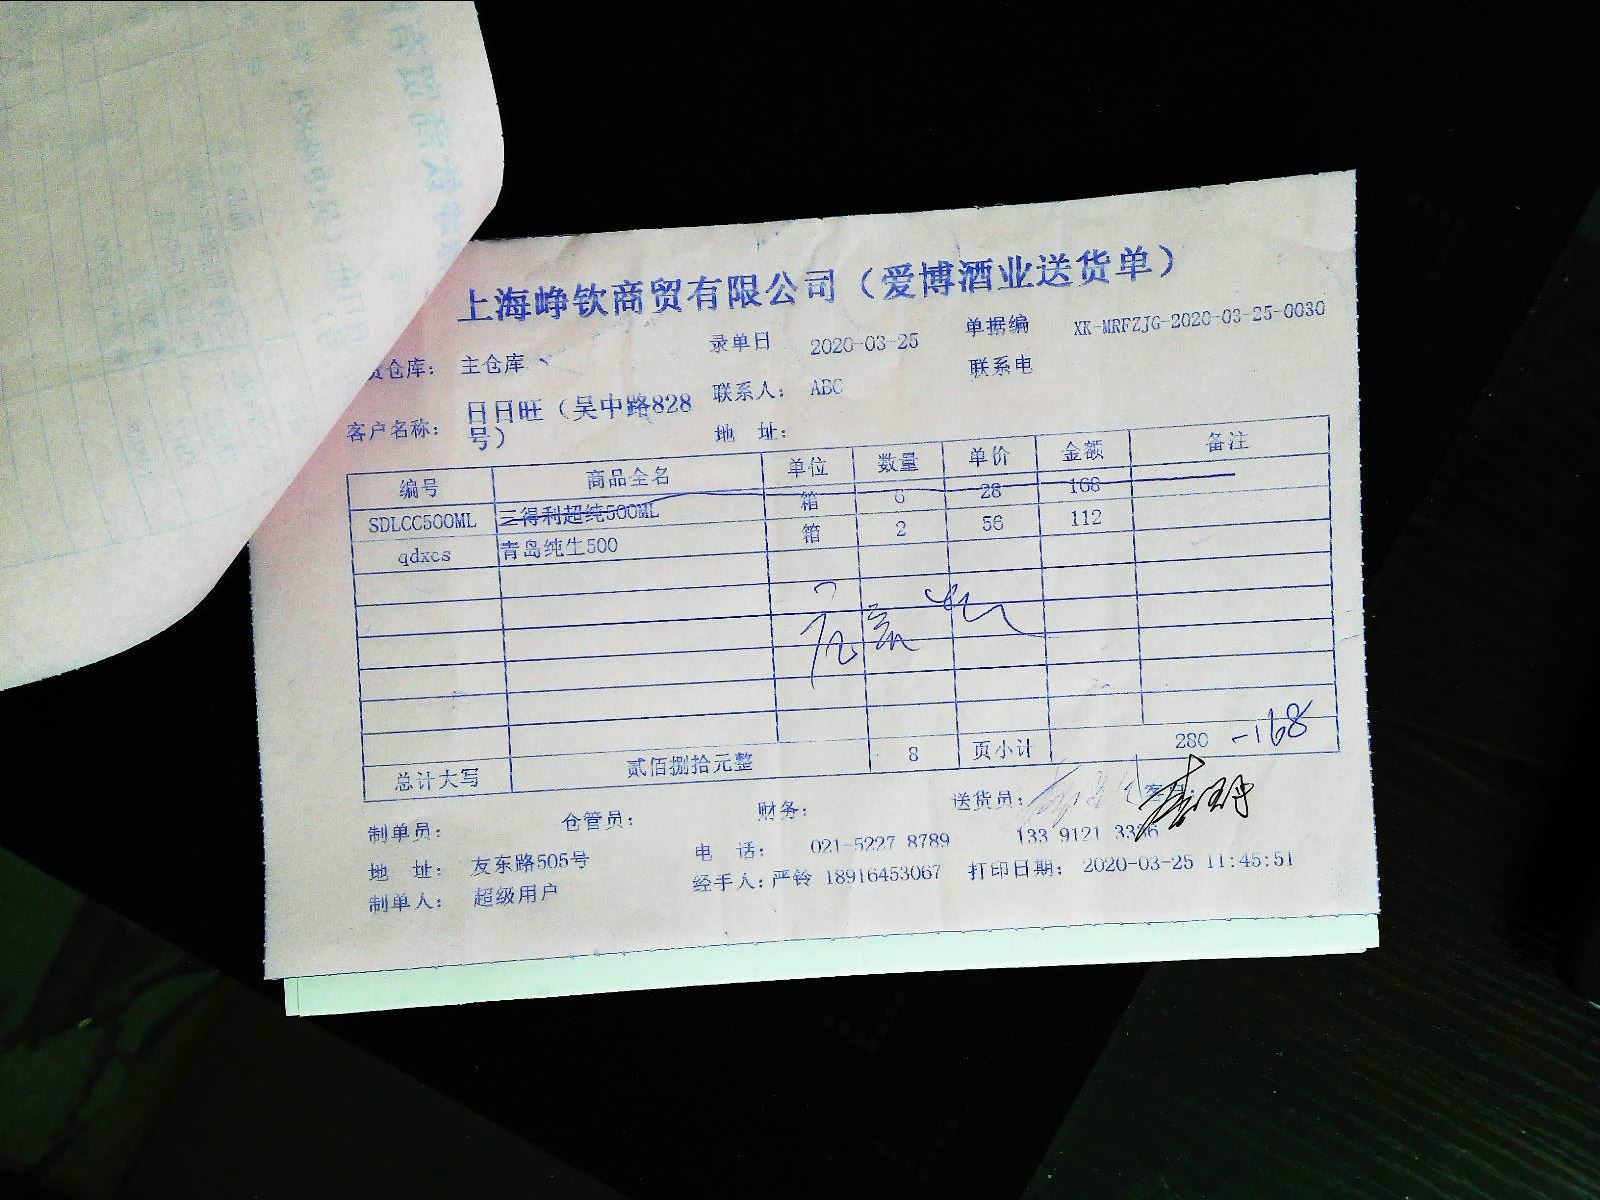 上海峥钦商贸有限公司（爱博酒业送货单）
货仓库： 主仓库 录单日 2020-03-25 单据编 XK-MRFZJG-2020-03-25-0030
客户名称： 日日旺（吴中路828号） 联系人： ABC 联系电
地 址：
编号 商品全名 单位 数量 单价 金额 备注
SDLCC500ML 三得利超纯500ML 箱 6 28 168
qdxcs 青岛纯生500 箱 2 56 112
总计大写 贰佰捌拾元整 8 页小计 280 -168
制单员： 仓管员： 财务： 送货员：
地 址： 友东路505号 电 话： 021-5227 8789 133 9121 3336
制单人： 超级用户 经手人：严铃 18916453067 打印日期： 2020-03-25 11:45:51